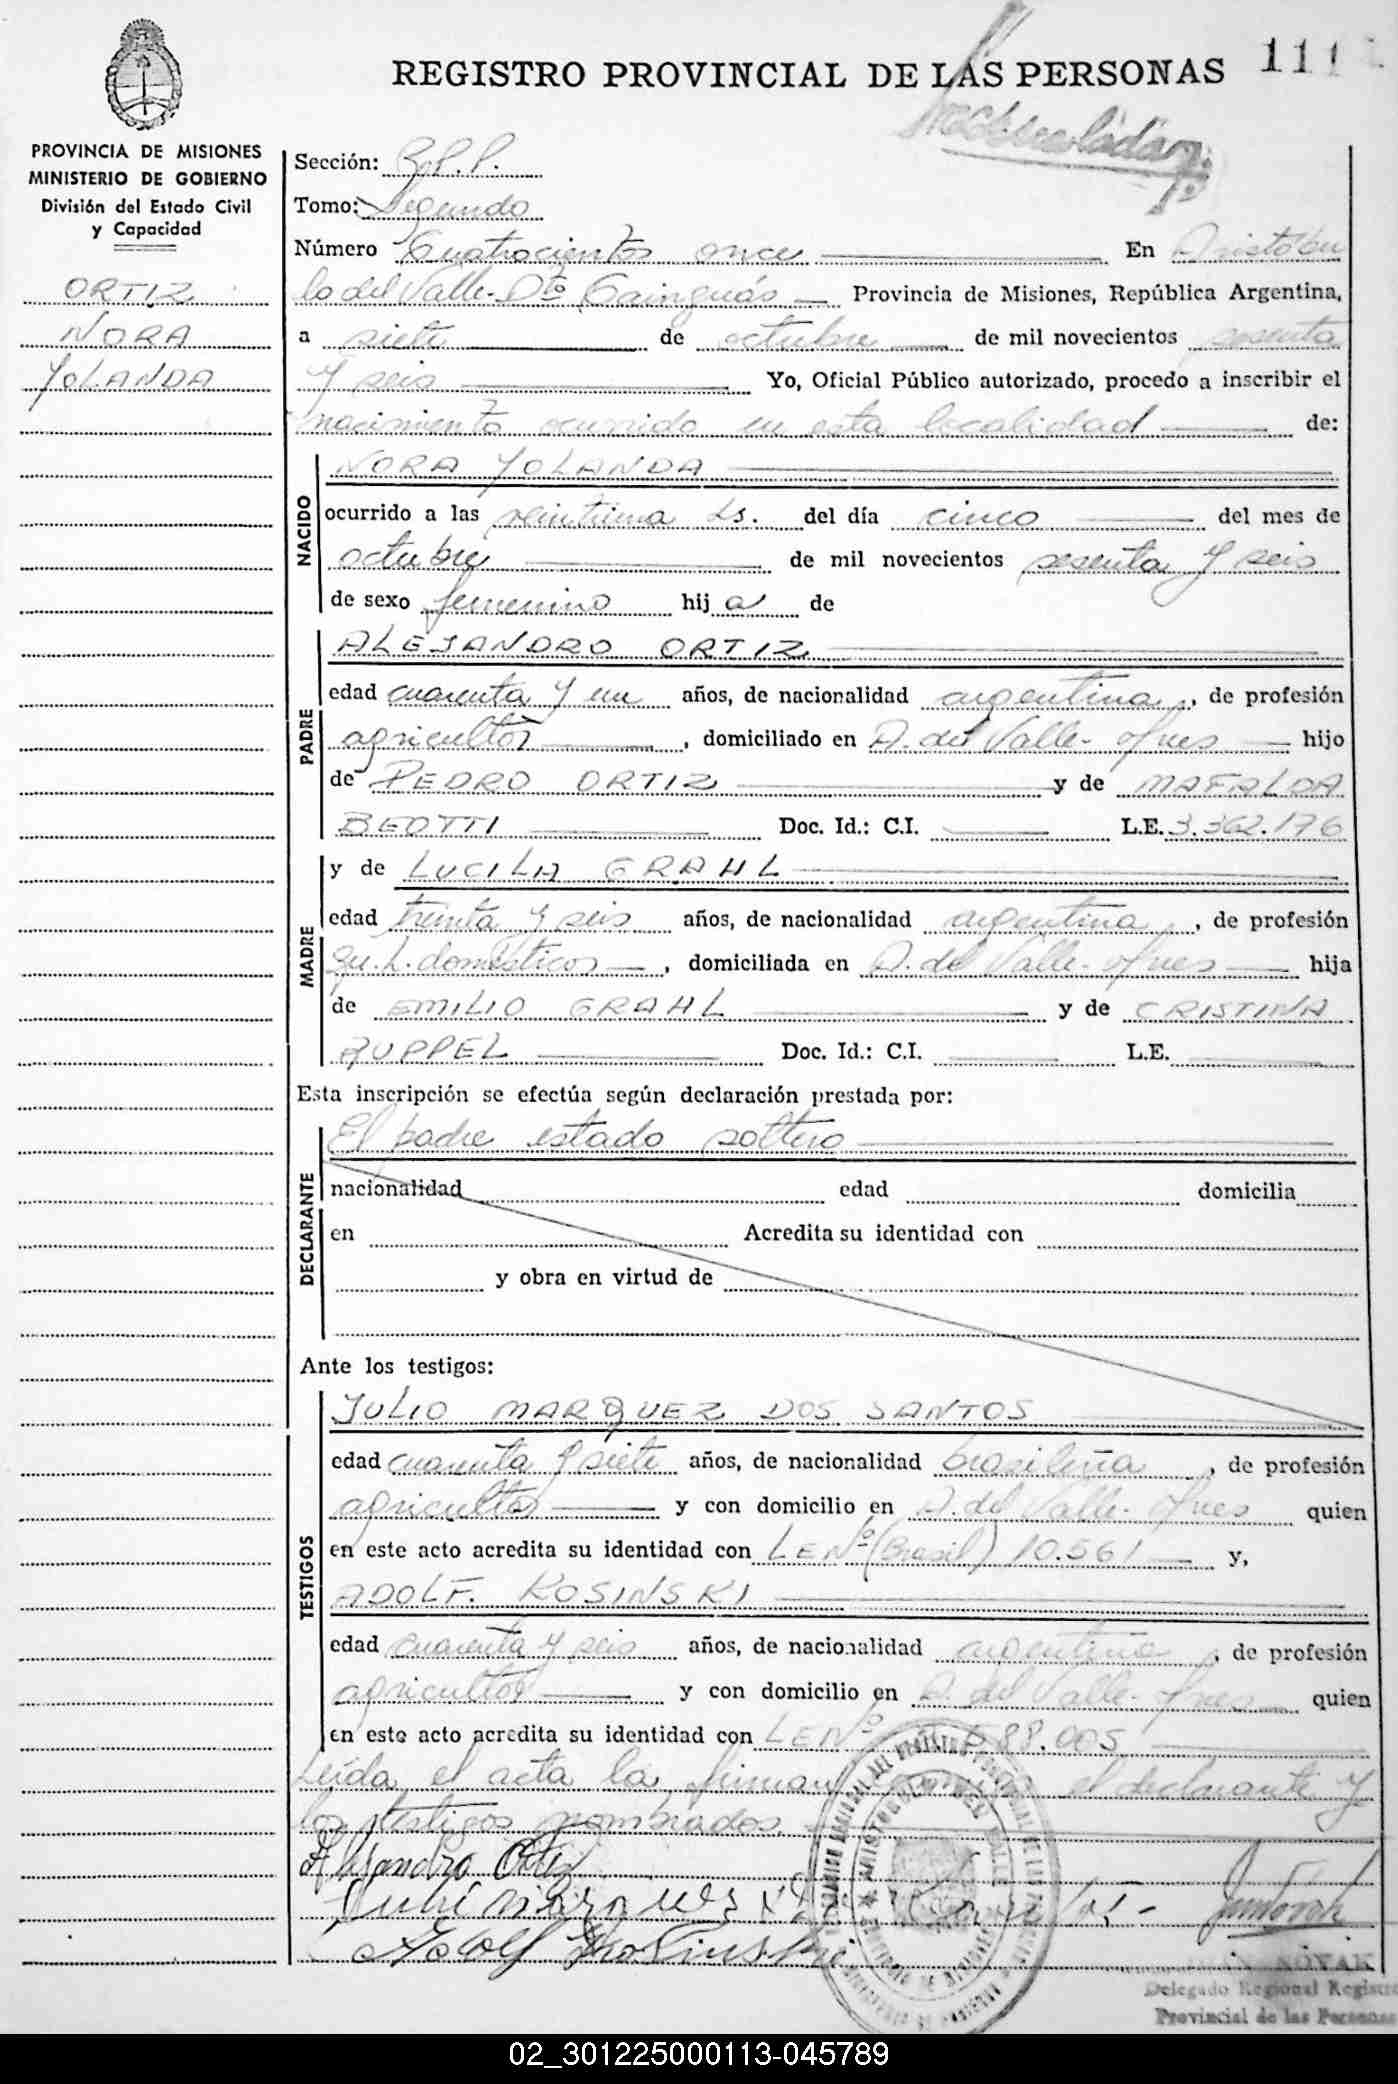 REGISTRO PROVINCIAL DE LAS PERSONAS 111
Matriculada
PROVINCIA DE MISIONES
MINISTERIO DE GOBIERNO
División del Estado Civil
y Capacidad
ORTIZ
NORA
YOLANDA
Sección:
Tomo: Segundo
Número Cuatrocientos once En Aristóbu
lo del Valle - Dto Cainguás Provincia de Misiones, República Argentina,
a siete de octubre de mil novecientos sesenta
y seis Yo, Oficial Público autorizado, procedo a inscribir el
nacimiento ocurrido en esta localidad de:
NACIDO
NORA YOLANDA
ocurrido a las veintiuna hs. del día cinco del mes de
octubre de mil novecientos sesenta y seis
de sexo femenino hija de
PADRE
ALEJANDRO ORTIZ
edad cuarenta y un años, de nacionalidad argentina, de profesión
agricultor, domiciliado en A. del Valle - Mnes hijo
de PEDRO ORTIZ y de MAFALDA
BEOTTI Doc. Id.: C.I. L.E. 3.362.176
MADRE
y de LUCILA GRAHL
edad treinta y seis años, de nacionalidad argentina, de profesión
Qu. h. domésticos, domiciliada en A. del Valle - Mnes hija
de EMILIO GRAHL y de CRISTINA
RUPPEL Doc. Id.: C.I. L.E.
Esta inscripción se efectúa según declaración prestada por:
DECLARANTE
El padre estado soltero
nacionalidad edad domicilia
en Acredita su identidad con
y obra en virtud de
Ante los testigos:
TESTIGOS
JULIO MARQUEZ DOS SANTOS
edad cuarenta y siete años, de nacionalidad brasileña, de profesión
agricultor y con domicilio en A. del Valle - Mnes quien
en este acto acredita su identidad con LE Nº (Brasil) 10.561 y,
ADOLF. KOSINSKI
edad cuarenta y seis años, de nacionalidad argentina, de profesión
agricultor y con domicilio en A. del Valle - Mnes quien
en este acto acredita su identidad con LE Nº 588.005
Leída el acta la firman el declarante y
los testigos nombrados.
Alejandro Ortiz
Adolf Kosinski
NOVAK
Delegado Regional Registro
Provincial de las Personas
02_301225000113-045789